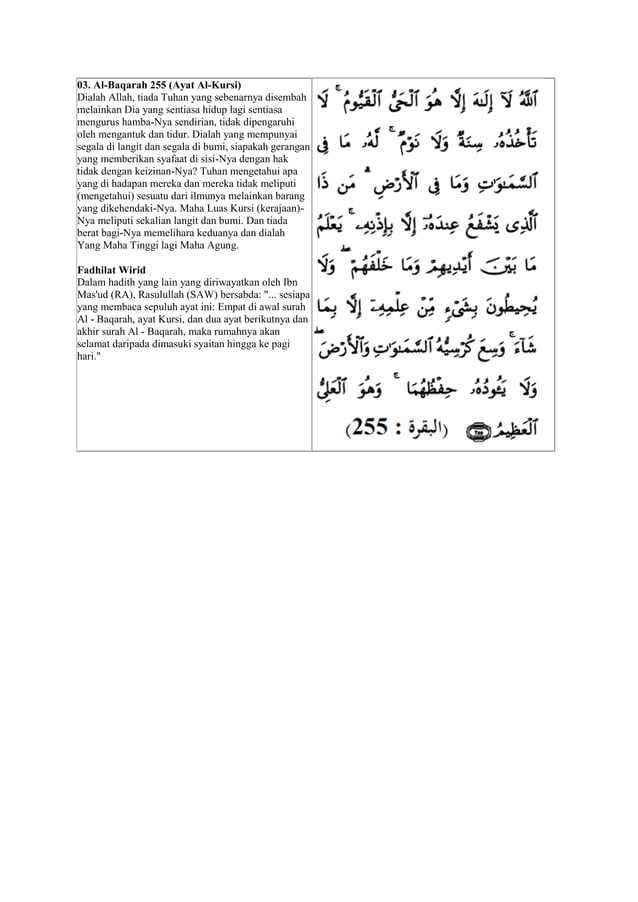 03. Al-Baqarah 255 (Ayat Al-Kursi)
Dialah Allah, tiada Tuhan yang sebenarnya disembah
melainkan Dia yang sentiasa hidup lagi sentiasa
mengurus hamba-Nya sendirian, tidak dipengaruhi
oleh mengantuk dan tidur. Dialah yang mempunyai
segala di langit dan segala di bumi, siapakah gerangan
yang memberikan syafaat di sisi-Nya dengan hak
tidak dengan keizinan-Nya? Tuhan mengetahui apa
yang di hadapan mereka dan mereka tidak meliputi
(mengetahui) sesuatu dari ilmunya melainkan barang
yang dikehendaki-Nya. Maha Luas Kursi (kerajaan)-
Nya meliputi sekalian langit dan bumi. Dan tiada
berat bagi-Nya memelihara keduanya dan dialah
Yang Maha Tinggi lagi Maha Agung.
Fadhilat Wirid
Dalam hadith yang lain yang diriwayatkan oleh Ibn
Mas'ud (RA), Rasulullah (SAW) bersabda: "... sesiapa
yang membaca sepuluh ayat ini: Empat di awal surah
Al - Baqarah, ayat Kursi, dan dua ayat berikutnya dan
akhir surah Al - Baqarah, maka rumahnya akan
selamat daripada dimasuki syaitan hingga ke pagi
hari."
ٱللَّهُ لَآ إِلَـٰهَ إِلَّا هُوَ ٱلْحَىُّ ٱلْقَيُّومُ ۚ لَا
تَأْخُذُهُۥ سِنَةٌ وَلَا نَوْمٌ ۚ لَّهُۥ مَا فِى
ٱلسَّمَـٰوَٰتِ وَمَا فِى ٱلْأَرْضِ ۗ مَن ذَا
ٱلَّذِى يَشْفَعُ عِندَهُۥٓ إِلَّا بِإِذْنِهِۦ ۚ يَعْلَمُ
مَا بَيْنَ أَيْدِيهِمْ وَمَا خَلْفَهُمْ ۖ وَلَا
يُحِيطُونَ بِشَىْءٍ مِّنْ عِلْمِهِۦٓ إِلَّا بِمَا
شَآءَ ۚ وَسِعَ كُرْسِيُّهُ ٱلسَّمَـٰوَٰتِ وَٱلْأَرْضَ ۖ
وَلَا يَـُٔودُهُۥ حِفْظُهُمَا ۚ وَهُوَ ٱلْعَلِىُّ
ٱلْعَظِيمُ ٢٥٥ (البقرة : 255)